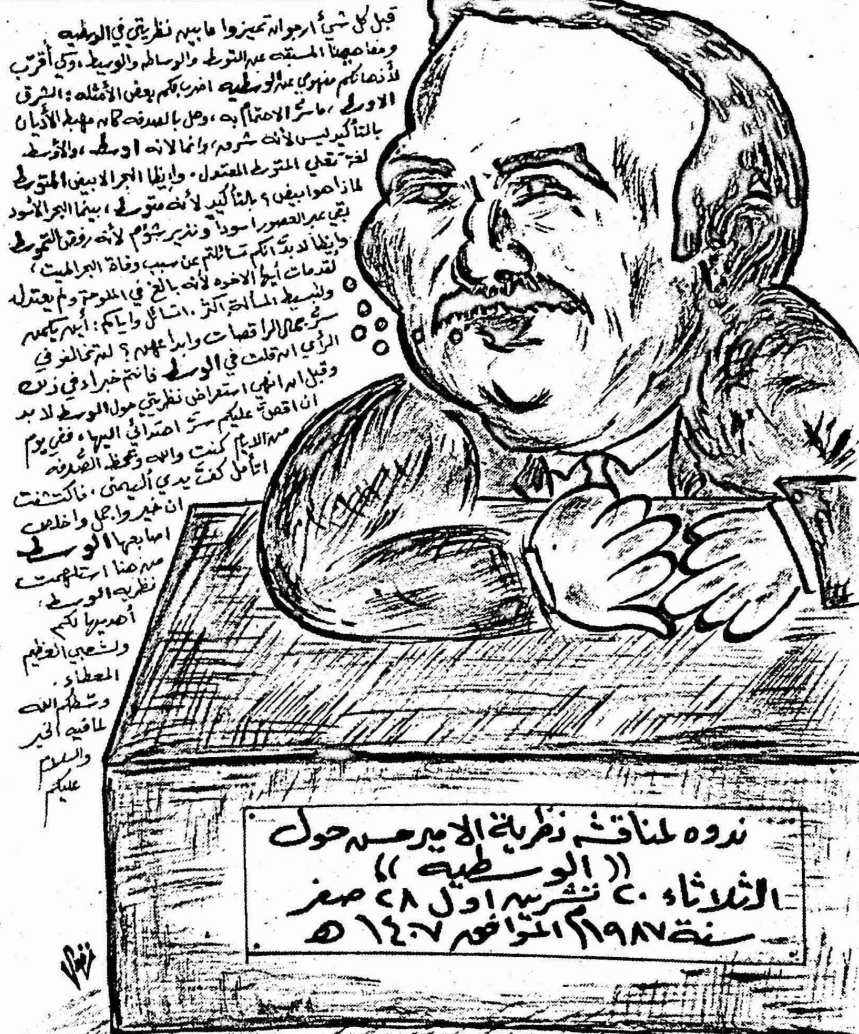 قبل كل شيئ ارجو ان تميزوا ما بين نظريتي في الوسطيه
ومفاهيمنا المسبقه عن التورط والوساطه والوسيط، وكي أقرّب
لأذهانكم مفهومي عن الوسطيه اضرب لكم بعض الأمثله: الشرق
الاوسط، ما سرّ الاهتمام به، وهل بالصدفه كان مهبط الأديان
بالتأكيد ليس لأنه شرق، وانما لانه اوسط، والأوسط
لغة تعني المتوسط المعتدل. وايظا البحر الابيض المتوسط
لماذا هو ابيض؟ بالتأكيد لأنه متوسط، بينما البحر الأسود
بقي عبر العصور اسوداً ونذير شؤم لأنه رفض التوسط
وايظا لا بدّ انكم تسائلتم عن سبب وفاة البحر الميت،
لقد مات أيها الاخوه لأنه بالغ في الملوحة ولم يعتدل
ولتبسيط المسألة اكثر. اتسائل واياكم: أين يكمن
سرّ جمال الراقصات وابداعهن؟ لن تخالفوني
الرأي ان قلت في الوسط فانتم خبراء في ذلك
وقبل ان انهي استعراض نظريتي حول الوسط لا بد
ان اقصّ عليكم سرّ اهتدائي اليها، ففي يوم
من الايام كنت والله وبمحظ الصّدفه
اتأمل كفّ يدي أليمنى، فاكتشفت
ان خير واجمل واخلص
اصابعها الوسط
من هنا استلهمت
نظرية الوسط،
أهديها لكم
ولشعبي العظيم
المعطاء.
وسّطكم الله
لما فيه الخير
والسلام
عليكم
ندوه لمناقشه نظرية الامير حسن حول
(( الوسطيه ))
الثلاثاء ٢٠ تشرين اول ٢٨ صفر
سنة ١٩٨٧م الموافق ١٤٠٧ ه